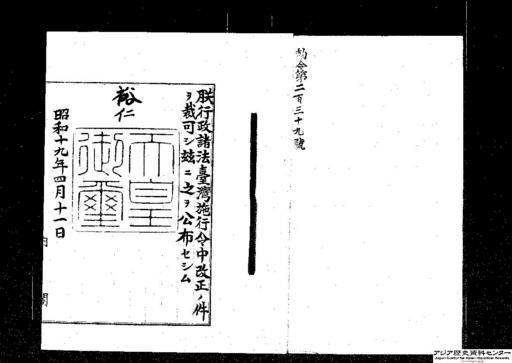 勅令第二百三十九號
朕行政諸法臺灣施行令中改正ノ件
ヲ裁可シ玆ニ之ヲ公布セシム
裕仁
天皇
御璽
昭和十九年四月十一日
内閣
アジア歴史資料センター
Japan Center for Asian Historical Records